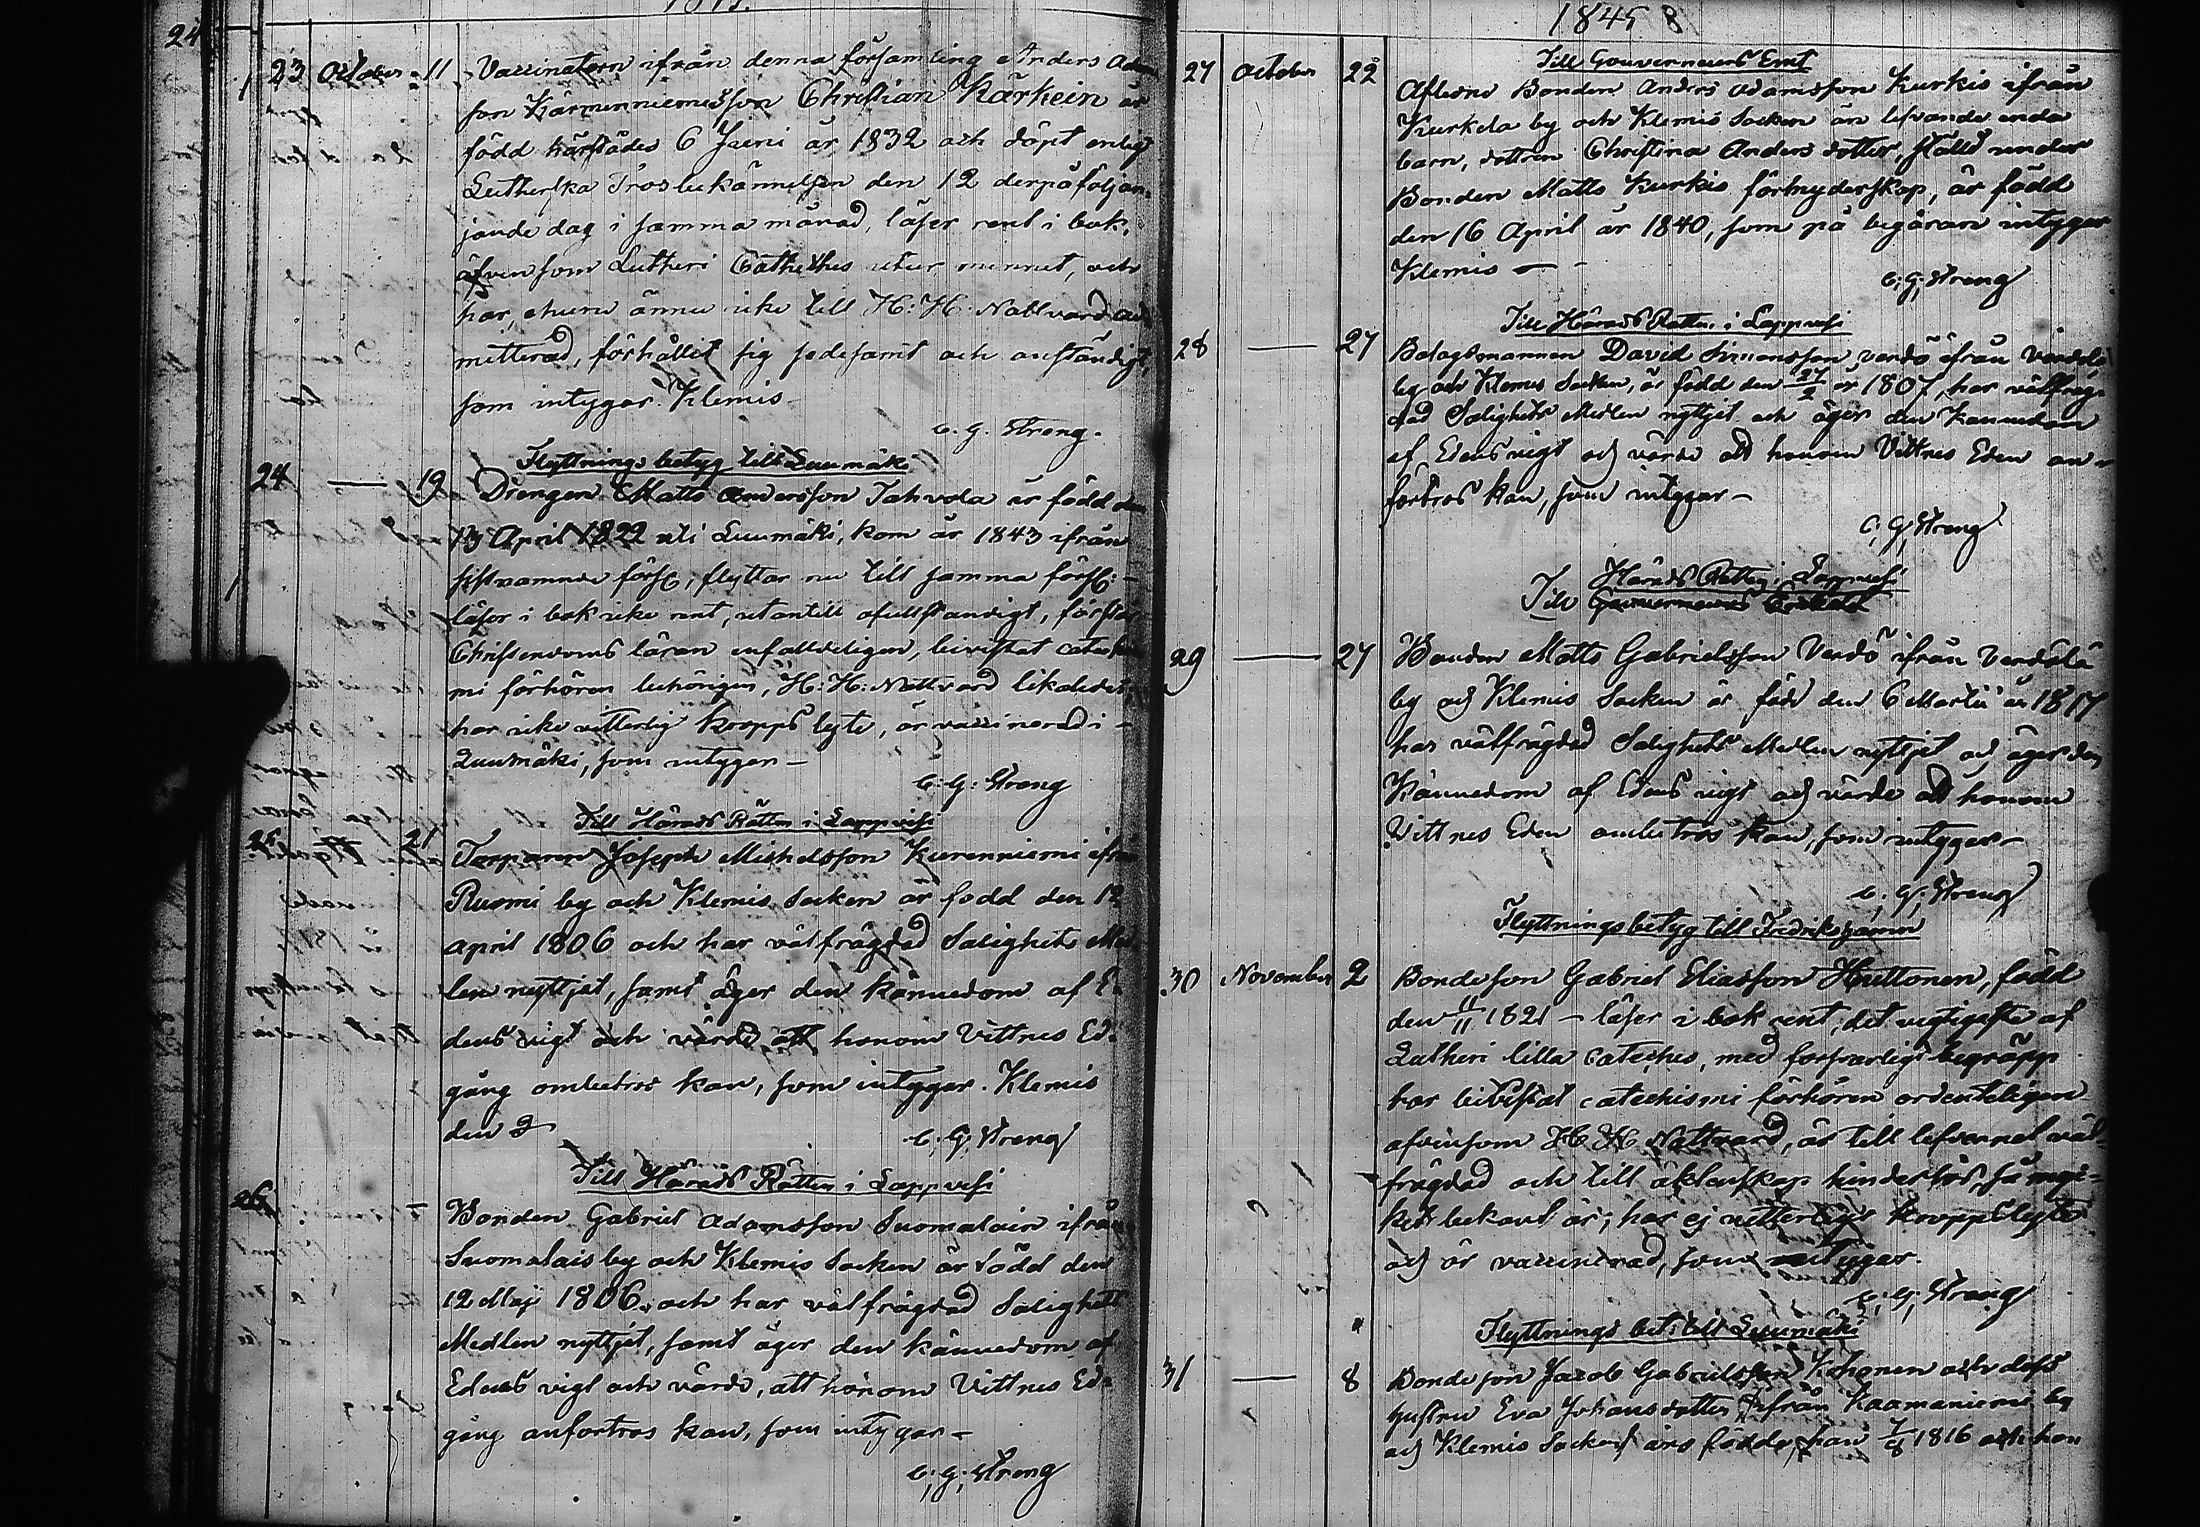 24
23 October 11 Vaccinatorn ifrån denna församling Anders Adam
son Kärmenniemis son Christian Kärkein är
född härstädes 6 Juni år 1832 och döpt enligt
Lutherska Trosbekännelsen den 12 derpåföljan
jande dag i samma månad, läser rent i bok,
äfvensom Lutheri Catheches utur minnet, och
har, ehuru ännu icke till H: H: Nattvard ad
mitterad, förhållit sig sedesamt och anständigt,
som intygar. Klemis
C. G. Streng.
Flyttnings betyg till Luumäki
24 — 19 Drengen Matts Andersson Tahvola är född den
13 April 1822 uti Luumäki, kom år 1843 ifrån
sistnämnde förs:, flyttar nu till samma förs: –
läser i bok icke rent, utantill ofullständigt, förstår
Christendoms läran enfalldeligen, bevistat catechis
mi förhören behörigen, H: H: Nattvard likaledes,
har icke vitterlig kropps lyte, är vaccinerad i –
Luumäki, som intygar –
C: G: Streng
Till Härads Rätten i Lappvesi
25 21 Torparen Joseph Michelsson Kurenniemi ifrån
Ruomi by och Klemis Socken är född den 12
April 1806 och har välfrägdad Salighets Med
len nyttjat, samt äger den kännedom af E
dens vigt och värde att honom Vittnes Ed
gång ombetros kan, som intygar. Klemis
den 2
C. G. Streng
Till Härads Rätten i Lappvesi
26 – Bonden Gabriel Adamsson Suomalain ifrån
Suomalais by och Klemis Socken är född den
12 Maji 1806, och har välfrägdad Salighets
Medlen nyttjat, samt äger den kännedom af
Edens vigt och värde, att honom Vittnes Ed
gång anförtros kan, som intygar –
C. G. Streng
1845
Till Gouverneurs Emt
27 October 22 Aflidne Bonden Anders Adamsson Kurkis ifrån
Kurkela by och Klemis Socken än lefvande enda
barn, dottren Christina Anders dotter, ställd under
Bonden Matts Kurkis förmyderskap, är född
den 16 April år 1840, som på begäran intygar
Klemis –
C. G. Streng
Till Härads Rätten i Lappvesi
28 — 27 Bolagsmannen David Simonsson Verdö ifrån Verdälä
by och Klemis Socken, är född den 27/2 år 1807, har välfräg-
dad Salighets Medlen nyttjat och äger den kännedom
af Edens vigt och värde att honom Vittnes Eden an-
förtros kan, som intygar –
C. G. Streng
Härads Rätten i Lappvesi
Till Gouverneurs
29 — 27 Bonden Matts Gabrielsson Verdö ifrån Verdälä
by och Klemis Socken är född den 6 Martii år 1817
har välfrägdad Salighets Medlen nyttjat och äger den
Kännedom af Edens vigt och värde att honom
Vittnes Eden ombetros kan, som intygar –
C. G. Streng
Flyttningsbetyg till Fredrikshamn
30 November 2 Bondeson Gabriel Eliasson Huttonen, född
den 11/11 1821 – läser i bok rent, det vigtigaste af
Lutheri lilla Cateches, med försvarligt begräpp
har bevistat catechismi förhören ordenteligen
äfvensom H. H. Nattvard, är till lefvernet väl-
frägdad och till äktenskap hinderlös, så myc-
ket bekant är, har ej vitterligt kroppslyte
och är vaccinerad, som intygar.
C. G. Streng
Flyttnings bet: till Luumäki
31 — 8 Bondeson Jacob Gabrielsson Kohonen och dess
hustru Eva Johansdotter ifrån Kaamaniemi by
och Klemis Socken äro födde, han 7/8 1816 och hon